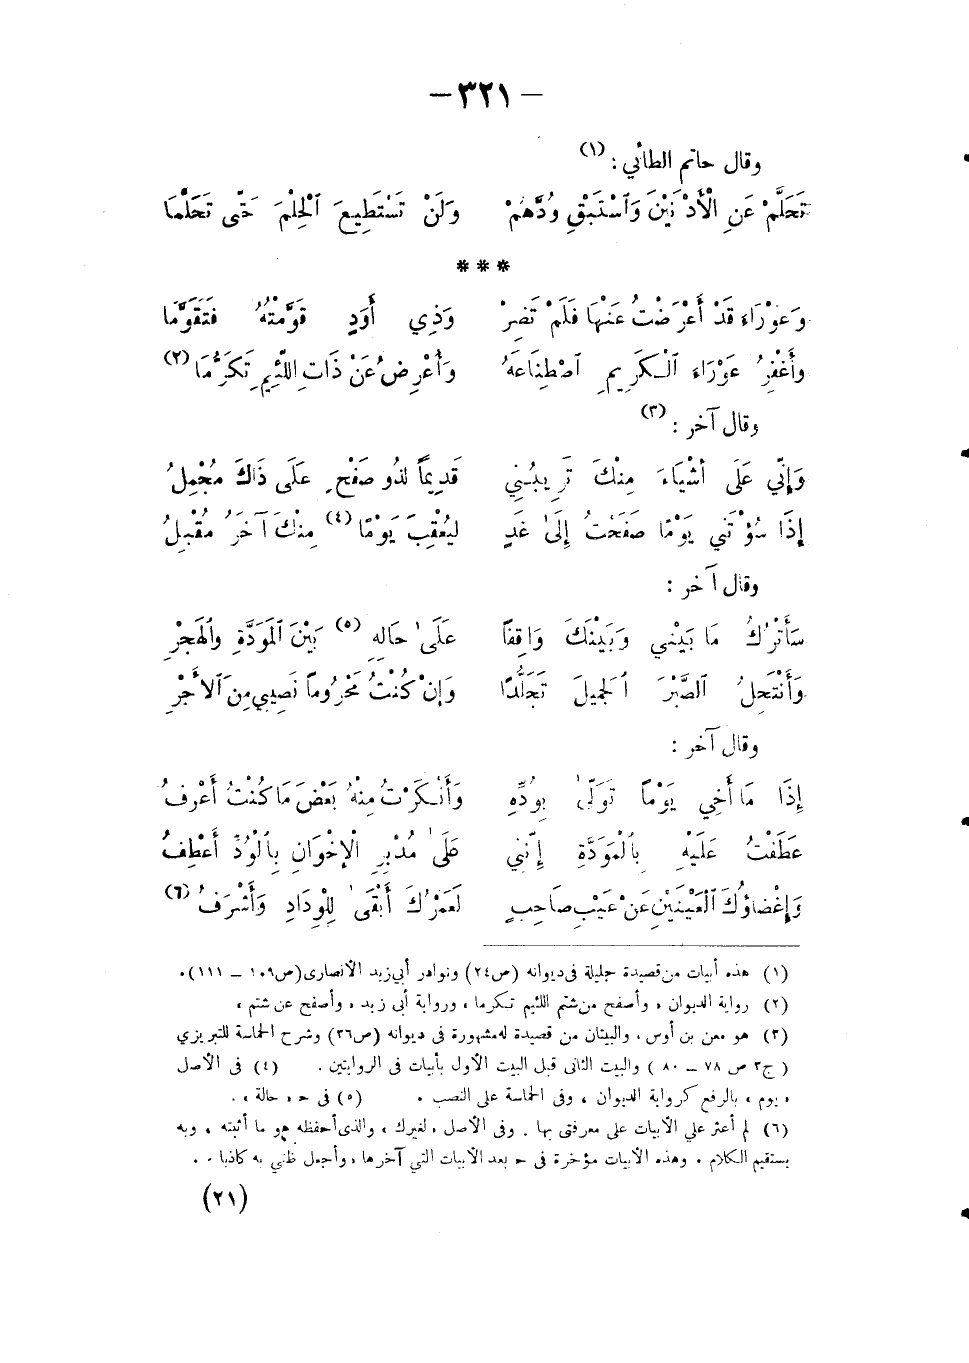 — ٣٢١ —
وقال حاتم الطائي : (١)
تَحَلَّمْ عَنِ الْأَدْنَيْنَ وَاسْتَبْقِ وُدَّهُمْ وَلَنْ تَسْتَطِيعَ الْحِلْمَ حَتَّى تَحَلَّمَا
* * *
وَعَوْرَاءَ قَدْ أَعْرَضْتُ عَنْهَا فَلَمْ تَضِرْ وَذِي أَوَدٍ قَوَّمْتُهُ فَتَقَوَّمَا
وأَغْفِرُ عَوْرَاءَ الْكَرِيمِ اصْطِنَاعَهُ وَأُعْرِضُ عَنْ ذَاتِ اللَّئِيمِ تَكَرُّمَا (٢)
وقال آخر : (٣)
وَإِنِّي عَلَى أَشْيَاءَ مِنْكَ تَرِيبُنِي قَدِيماً لَذُو صَفْحٍ عَلَى ذَاكَ مُجْمِلُ
إِذَا سُؤْتَنِي يَوْمًا صَفَحْتُ إِلَى غَدٍ لِيُعْقِبَ يَوْمًا (٤) مِنْكَ آخَرُ مُقْبِلُ
وقال آخر :
سَأَتْرُكُ مَا بَيْنِي وَبَيْنَكَ وَاقِفًا عَلَى حَالِهِ (٥) بَيْنَ الْمَوَدَّةِ والْهَجْرِ
وَأَنْتَحِلُ الصَّبْرَ الْجَمِيلَ تَجَلُّدًا وَإِنْ كُنْتُ مَحْرُومًا نَصِيبِي مِنَ الْأَجْرِ
وقال آخر :
إِذَا مَا أَخِي يَوْمًا تَوَلَّى بِوُدِّهِ وَأَنْكَرْتُ مِنْهُ بَعْضَ مَا كُنْتُ أَعْرِفُ
عَطَفْتُ عَلَيْهِ بِالْمَوَدَّةِ إِنَّنِي عَلَى مُدْبِرِ الْإِخْوَانِ بِالْوُدِّ أَعْطِفُ
وَإِغْضَاؤُكَ الْعَيْنَيْنِ عَنْ عَيْبِ صَاحِبٍ لَعَمْرُكَ أَبْقَى لِلْوِدَادِ وَأَشْرَفُ (٦)
(١) هذه أبيات من قصيدة جليلة فى ديوانه (ص٢٤) ونوادر أبي زيد الأنصارى (ص١٠٩ — ١١١).
(٢) رواية الديوان « وأصفح من شتم اللئيم تكرما » ورواية أبى زيد « وأصفح عن شتم »
(٣) هو معن بن أوس، والبيتان من قصيدة له مشهورة فى ديوانه (ص٣٦) وشرح الحماسة للتبريزي
( ج٣ ص ٧٨ — ٨٠ ) والبيت الثانى قبل البيت الأول بأبيات فى الروايتين . (٤) فى الأصل
« يوم » بالرفع كرواية الديوان ، وفى الحماسة على النصب . (٥) فى ح « حالة » .
(٦) لم أعثر علي الأبيات على معرفتى بها . وفى الأصل « لغيرك » والذى أحفظه هو ما أثبته ، وبه
يستقيم الكلام . وهذه الأبيات مؤخرة فى ح بعد الأبيات التي آخرها « وأجعل ظني به كاذبا » .
(٢١)